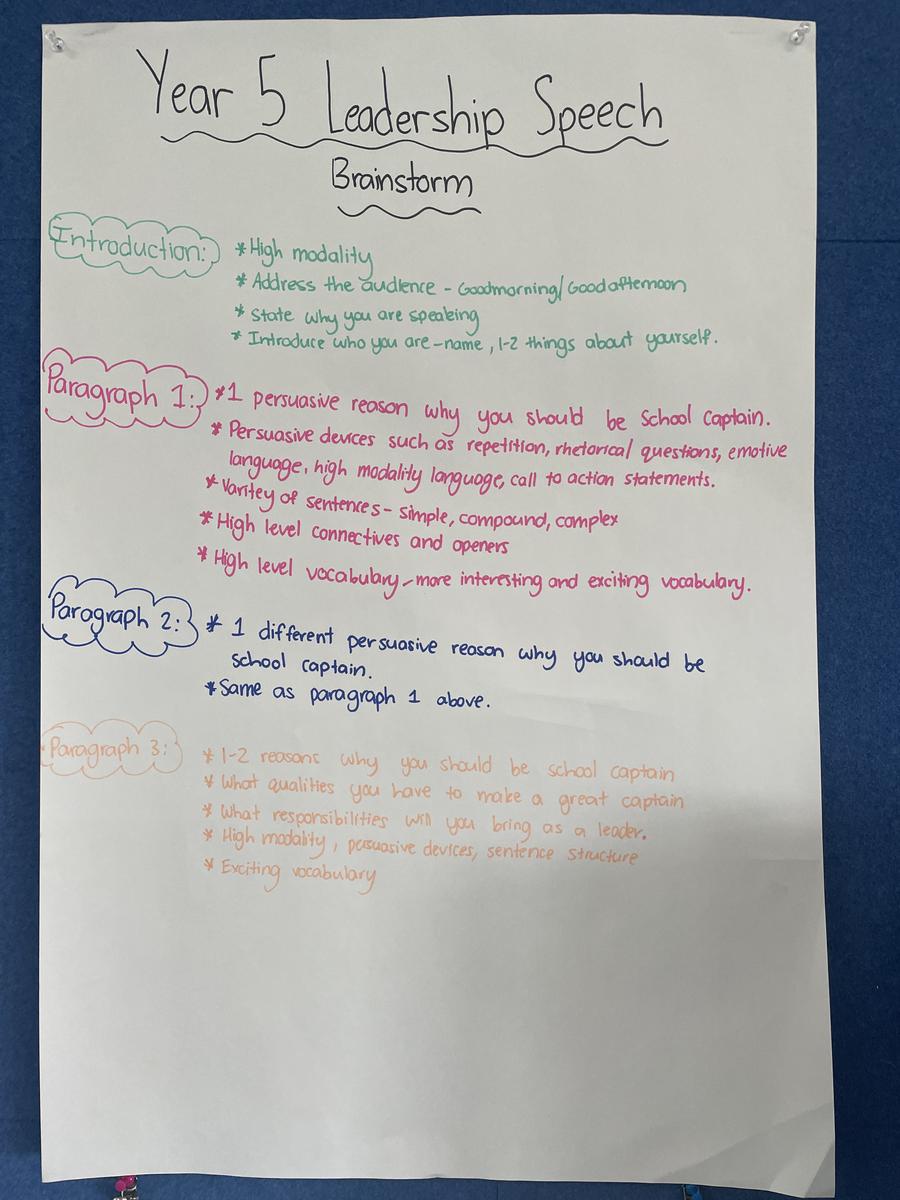 Year 5 Leadership Speech
Brainstorm
Introduction: * High modality
* Address the audience - Goodmorning/Goodafternoon
* State why you are speaking
* Introduce who you are - name, 1-2 things about yourself.
Paragraph 1: * 1 persuasive reason why you should be school captain.
* Persuasive devices such as repetition, rhetorical questions, emotive
language, high modality language, call to action statements.
* Varitey of sentences - simple, compound, complex
* High level connectives and openers
* High level vocabulary - more interesting and exciting vocabulary.
Paragraph 2: * 1 different persuasive reason why you should be
school captain.
* Same as paragraph 1 above.
Paragraph 3: * 1-2 reasons why you should be school captain
* What qualities you have to make a great captain
* What responsibilities will you bring as a leader.
* High modality, persuasive devices, sentence structure
* Exciting vocabulary